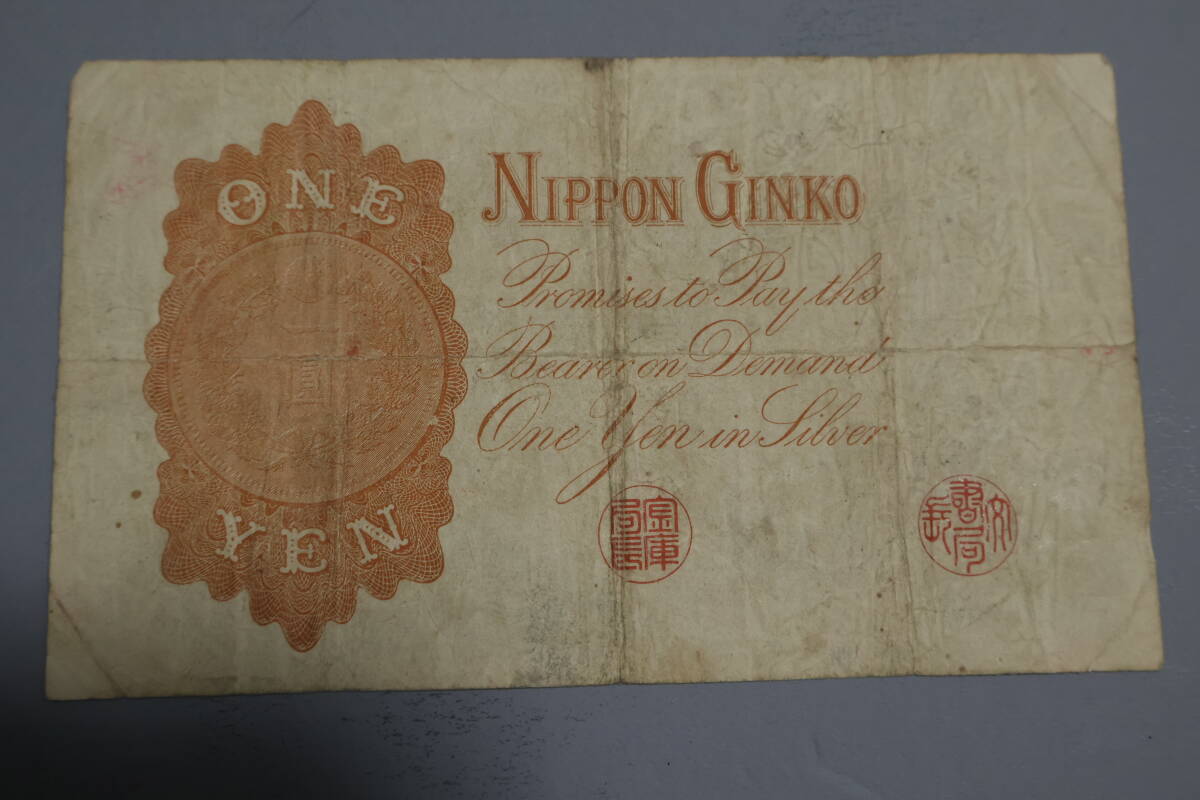 ONE
YEN
NIPPON GINKO
Promises to Pay the
Bearer on Demand
One Yen in Silver
金庫局長
文書局長